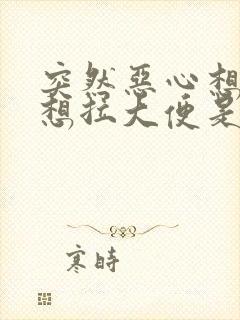 突然恶心想
想拉大便是
寒時